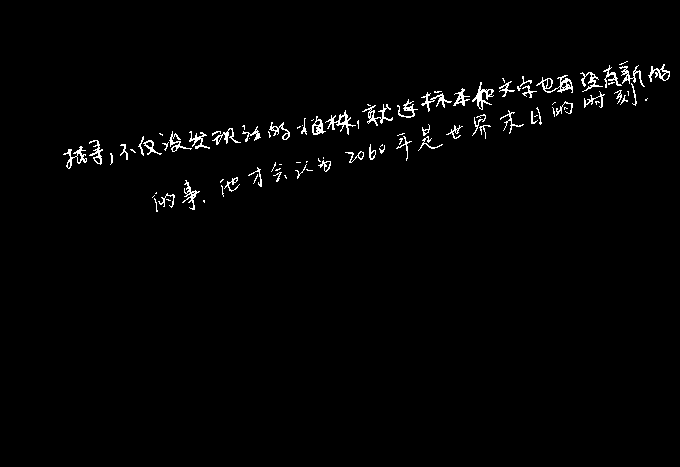 搜寻,不仅没发现活的植株,就连标本和文字也再没有新的
的事.他才会认为2060年是世界末日的时刻.